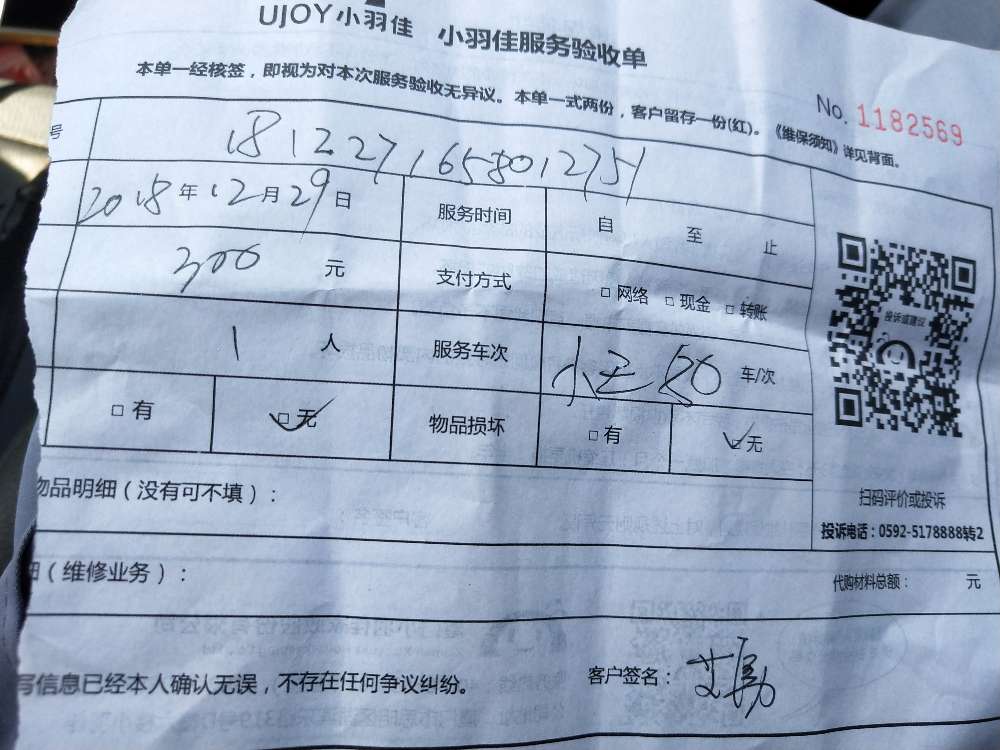 UJOY小羽佳 小羽佳服务验收单
本单一经核签，即视为对本次服务验收无异议。本单一式两份，客户留存一份(红)。《维保须知》详见背面。
No. 1182569
号 1812271658012751
2018年12月29日 服务时间 自 至 止
300 元 支付方式 □网络 □现金 □转账
1 人 服务车次 小 50 车/次
□有 □无 物品损坏 □有 □无
投诉或建议
物品明细（没有可不填）：
扫码评价或投诉
投诉电话：0592-5178888转2
（维修业务）：
代购材料总额： 元
写信息已经本人确认无误，不存在任何争议纠纷。 客户签名：艾勇